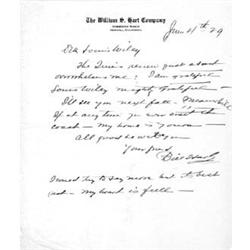 The William S. Hart Company
June 11th 29
Dr Louis Wiley
The Times review just about
overwhelms me! I am grateful
Louis Wiley mighty grateful -
I'll see you next fall - Meanwhile
if at any time you visit the
coast - my home is yours -
All good be with you
Yours
Bill Hart
I won't try to say more but to
not - My heart is full -